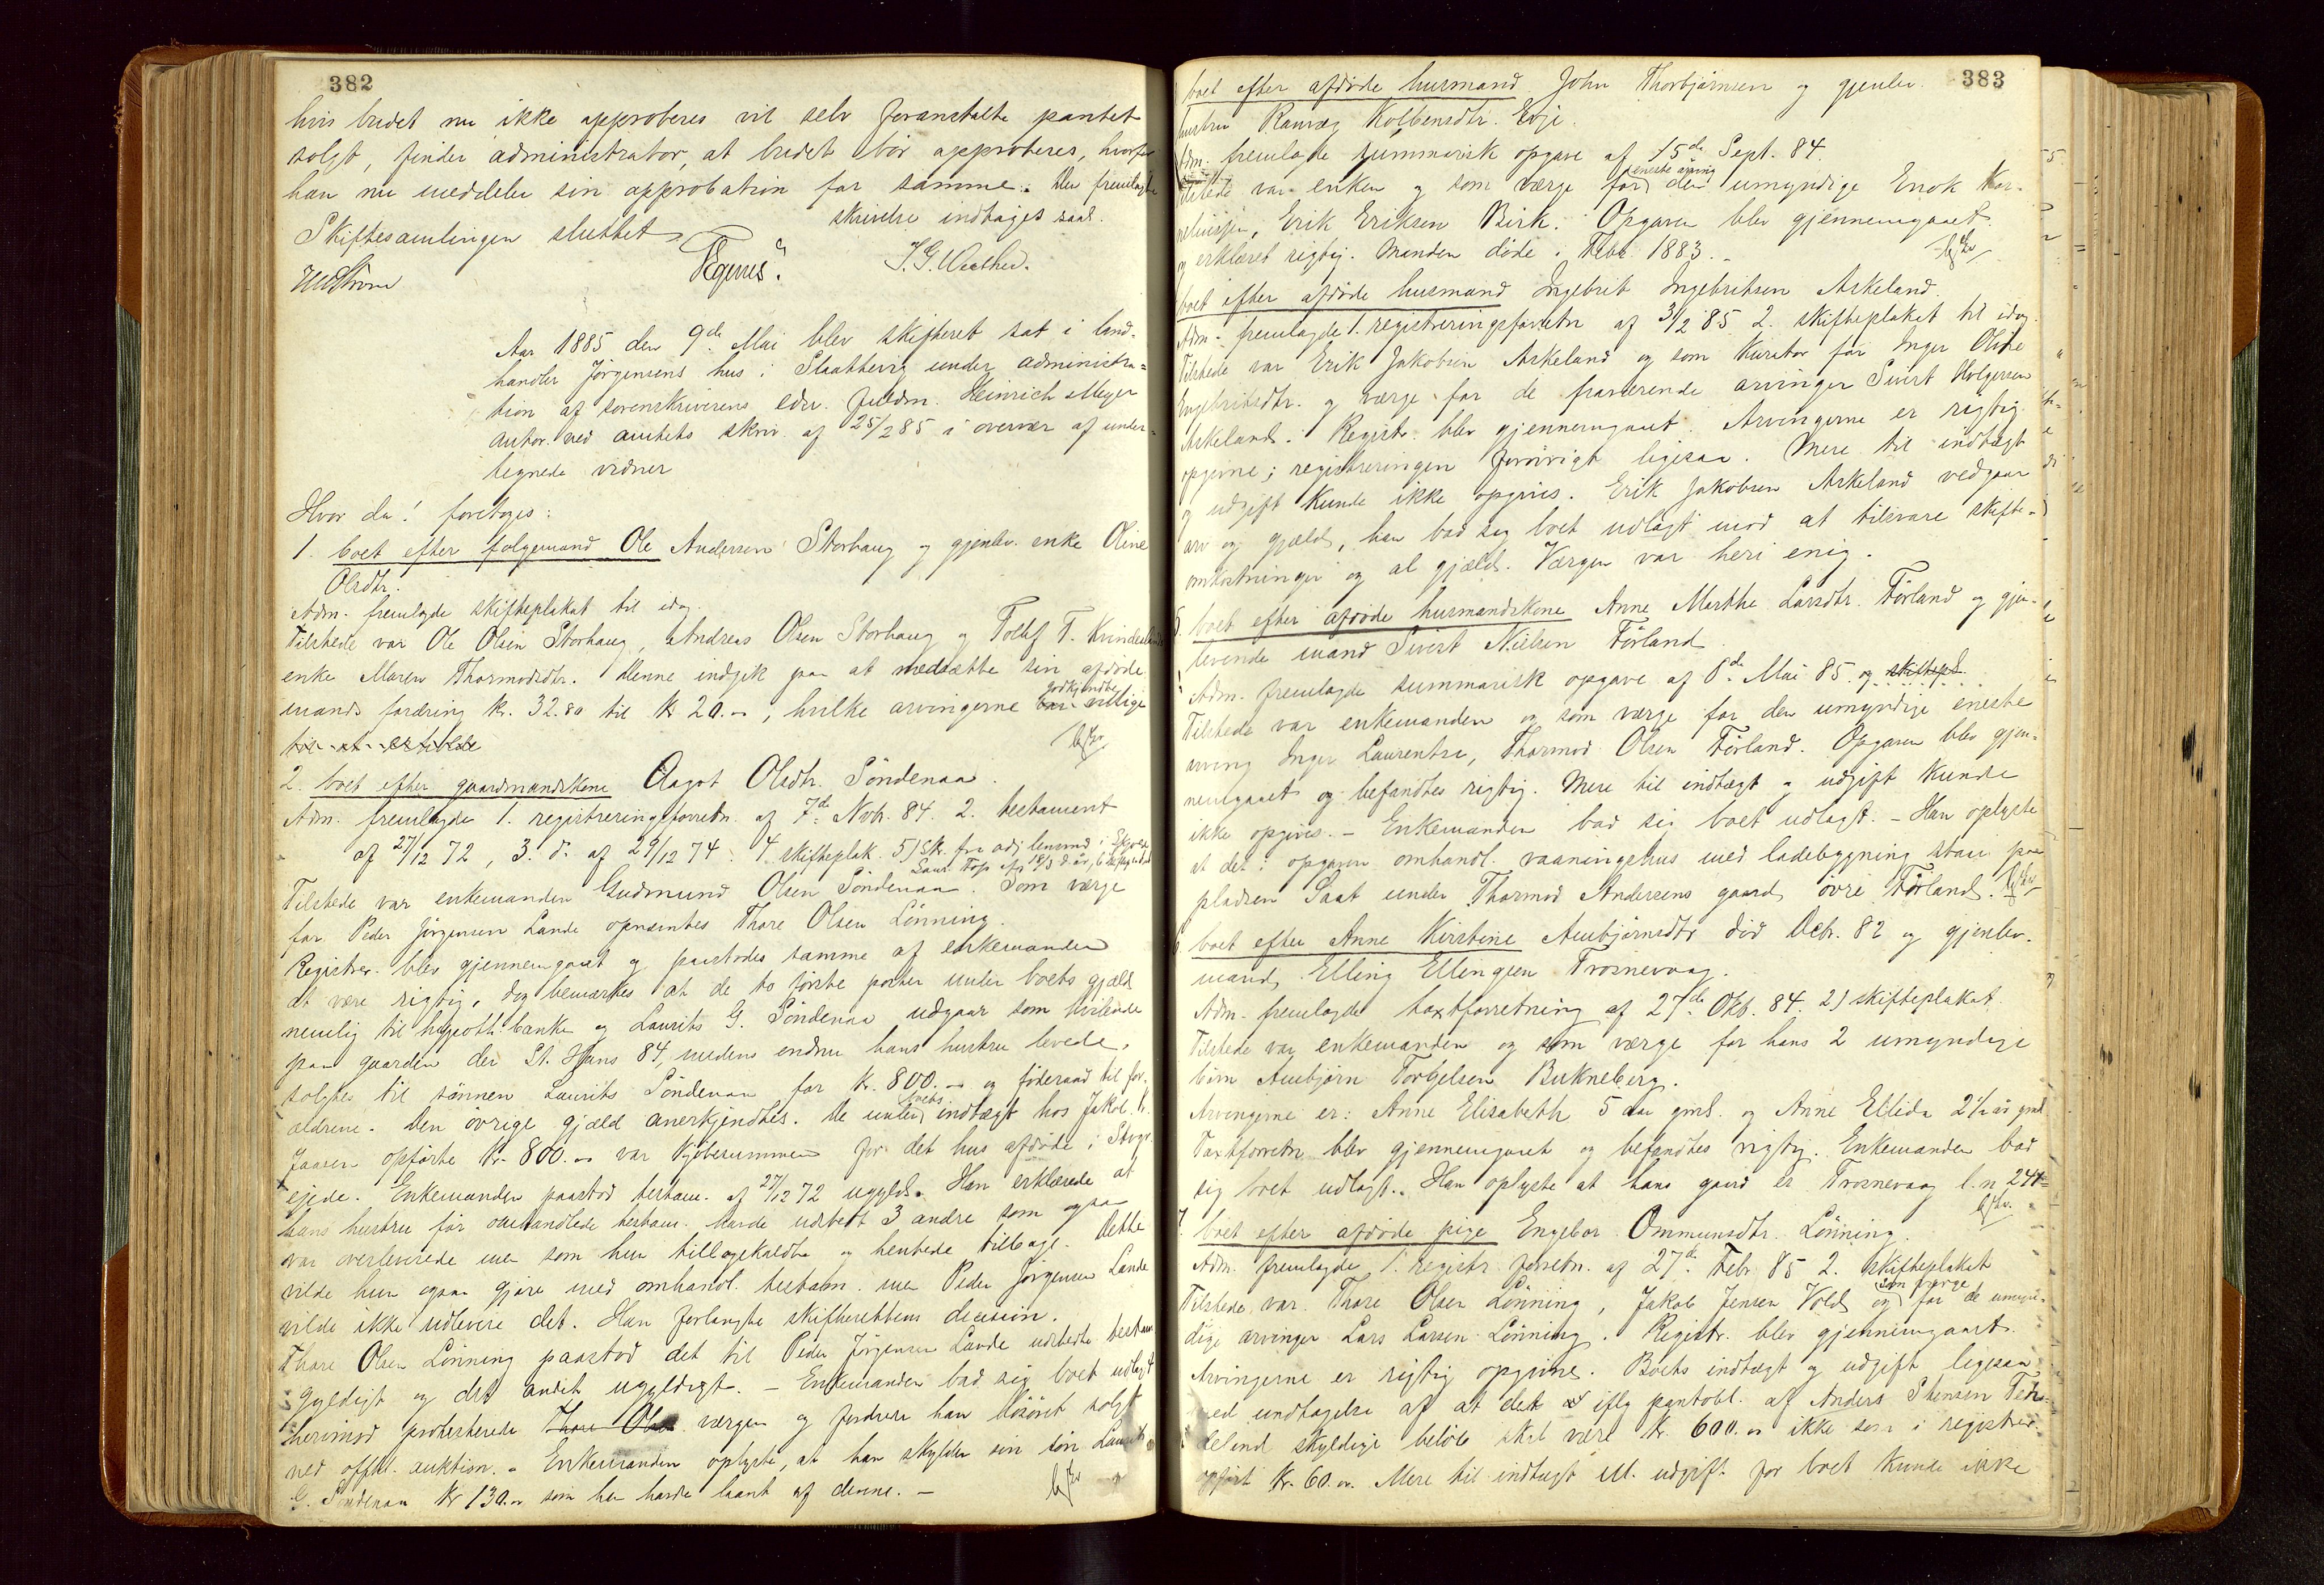 382
hvis budet nu ikke approberes vil selv foranstalte pantet
solgt, finder administrator, at budet bör approberes, hvorfor
han nu meddeler sin approbation for samme. Den fremlagte
skrivelse indtages saal.
Skiftesamlingen sluttet
Aar 1885 den 9de Mai blev skifteret sat i land-
handler Jörgensens hus i Slaattevig under administra-
tion af sorenskriverens edsv. fuldm. Heinrich Meyer
autor. ved amtets skriv. af 25/2 85 i overvær af under-
tegnede vidner
Hvor da! foretoges:
1. boet efter folgemand Ole Andersen Storhaug og gjenlev. enke Oline
Olsdtr.
Adm. fremlagde skifteplakat til idag.
Tilstede var Ole Olsen Storhaug, Andreas Olsen Storhaug og Tollef T.
enke Maren Thormodsdtr. Denne indgik paa at nedsætte sin afdöde
mands fordring kr. 32.80 til kr 20.-, hvilke arvingerne godkjendte var villige
til at erholde
2. boet efter gaardmandskone Aagot Olsdtr. Söndenaa.
Adm. fremlagde 1. registreringsforretn. af 7de Novb. 84. 2. testament
af 27/12 72, 3. do. af 29/12 74. 4 skifteplak. 5) Skr. fra adj lensmd i
Tilstede var enkemanden Gudmund Olsen Söndenaa. Som værge
for Peder Jörgensen Lande opnævntes Thore Olsen Lönning.
Registrer. blev gjennemgaaet og paastodes samme af enkemanden
at være rigtig, dog bemærkes at de to förste poster under boets gjæld
nemlig til hypoth. banken og Laurits G. Söndenaa udgaar som hvilende
paa gaarden der St. Hans 84, medens endnu hans hustru levede,
solgtes til sönnen Laurits Söndenaa for kr. 800.- og föderaad til for-
ældrene. Den övrige gjæld anerkjendtes. De under boets indtægt hos Jakob
Jaasen opförte kr. 800.- var kjöbesummen for det hus afdöde i
ejede. Enkemanden paastod testam. af 27/12 72 ugyldig. Han erklærede at
hans hustru för omhandlede testam. havde udstedt 3 andre som ogsaa
var overleverede men som hun tilbagekaldte og hentede tilbage. Dette
vilde hun ogsaa gjöre med omhandl. testam. men Peder Jörgensen Lande
vilde ikke udlevere det. Han forlangte skifterettens decision.
Thore Olsen Lönning paastod det til Peder Jörgensen Lande udstedte testam
gyldigt og det andet ugyldigt. - Enkemanden bad sig boet udlagt
herimod protesterede Thore Olsen værgen og fordrer han lösöret solgt
ved offtl. auktion. - Enkemanden oplyste, at han skylder sin sön Laurits
G. Söndenaa kr 130.- som han havde laant af denne. -
383
boet efter afdöde husmand John Thorbjörnsen og gjenlev.
hustru Ranveg Kolbensdtr. Eoje.
Adm. fremlagde summarisk opgave af 15de Sept. 84.
Tilstede var enken og som værge for eneste arving den umyndige Enok Kor-
neliusen, Erik Eriksen Birk. Opgaven blev gjennemgaaet
og erklæret rigtig. Manden döde i Febr. 1883. -
boet efter afdöde husmand Ingebret Ingebritsen Askeland
Adm. fremlagde 1. registreringsforretn af 3/2 85 2. skifteplakat til idag.
Tilstede var Erik Jakobsen Askeland og som kurator for Inger Oline
Engebritsdtr. og værge for de fraværende arvinger Sivert Holgersen
Askeland. Registr. blev gjennemgaaet. Arvingerne er rigtig
opgivne; registreringen forövrigt ligesaa. Mere til indtægt
og udgift kunde ikke opgives. Erik Jakobsen Askeland vedgaar
arv og gjæld, han bad sig boet udlagt mod at tilsvare skifte-
omkostninger og al gjæld. Værgen var heri enig.
5. boet efter afdöde husmandskone Anne Marthe Larsdtr. Förland og gjen-
levende mand Sivert Nielsen Förland
Adm. fremlagde summarisk opgave af 6de Mai 85. og skiftepl.
Tilstede var enkemanden og som værge for den umyndige eneste
arving Inger Laurentse, Thormod Olsen Förland. Opgaven blev gjen-
nemgaaet og befandtes rigtig. Mere til indtægt og udgift kunde
ikke opgives. - Enkemanden bad sig boet udlagt. - Han oplyste
at det i opgaven omhandl. vaaningshus med ladebygning staar paa
pladsen Saat under Thormod Andersens gaard övre Förland.
6. boet efter Anne Kirstine Ambjörnsdtr död Decbr. 82 og gjenlev.
mand Elling Ellingsen Trosnevaag.
Adm. fremlagde taxtforretning af 27de Okb. 84. 2) skifteplakat
Tilstede var enkemanden og som værge for hans 2 umyndige
börn Ambjörn Torgelsen Bukneberg.
Arvingerne er: Anne Elisabeth 5 aar gml. og Anne Ellida 2½ år gml
Taxtforretn blev gjennemgaaet og befandtes rigtig. Enkemanden bad
sig boet udlagt. Han oplyste at hans gaard er Trosnevaag l.n 244
7. boet efter afdöde pige Engebor Ommunsdtr. Lönning.
Adm. fremlagde 1. registr. forretn. af 27de Febr 85 2. skifteplakat
Tilstede var Thore Olsen Lönning, Jakob Jensen Vold og som værge for de umyn-
dige arvinger Lars Larsen Lönning. Registr. blev gjennemgaaet.
Arvingerne er rigtig opgivne. Boets indtægt og udgift ligesaa
med undtagelse af at det iflg pantobl. af Anders Stensen
skyldige belöb skal være kr. 600.- ikke som i registrer.
opfört kr. 60.-. Mere til indtægt ell. udgift for boet kunde ikke